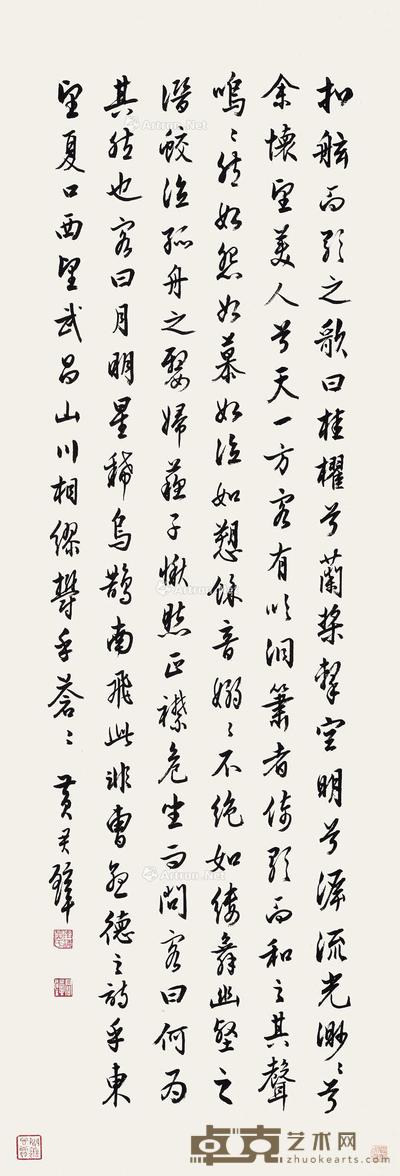 扣舷而歌之歌曰桂櫂兮蘭槳擊空明兮泝流光渺〻兮
余懷望美人兮天一方客有吹洞簫者倚歌而和之其聲
嗚〻然如怨如慕如泣如愬餘音嫋〻不絕如縷舞幽壑之
潛蛟泣孤舟之嫠婦蘇子愀然正襟危坐而問客曰何為
其然也客曰月明星稀烏鵲南飛此非曹孟德之詩乎東
望夏口西望武昌山川相繆鬱乎蒼〻 黃君璧
Artron.Net
卓克艺术网
www.zhuokearts.com